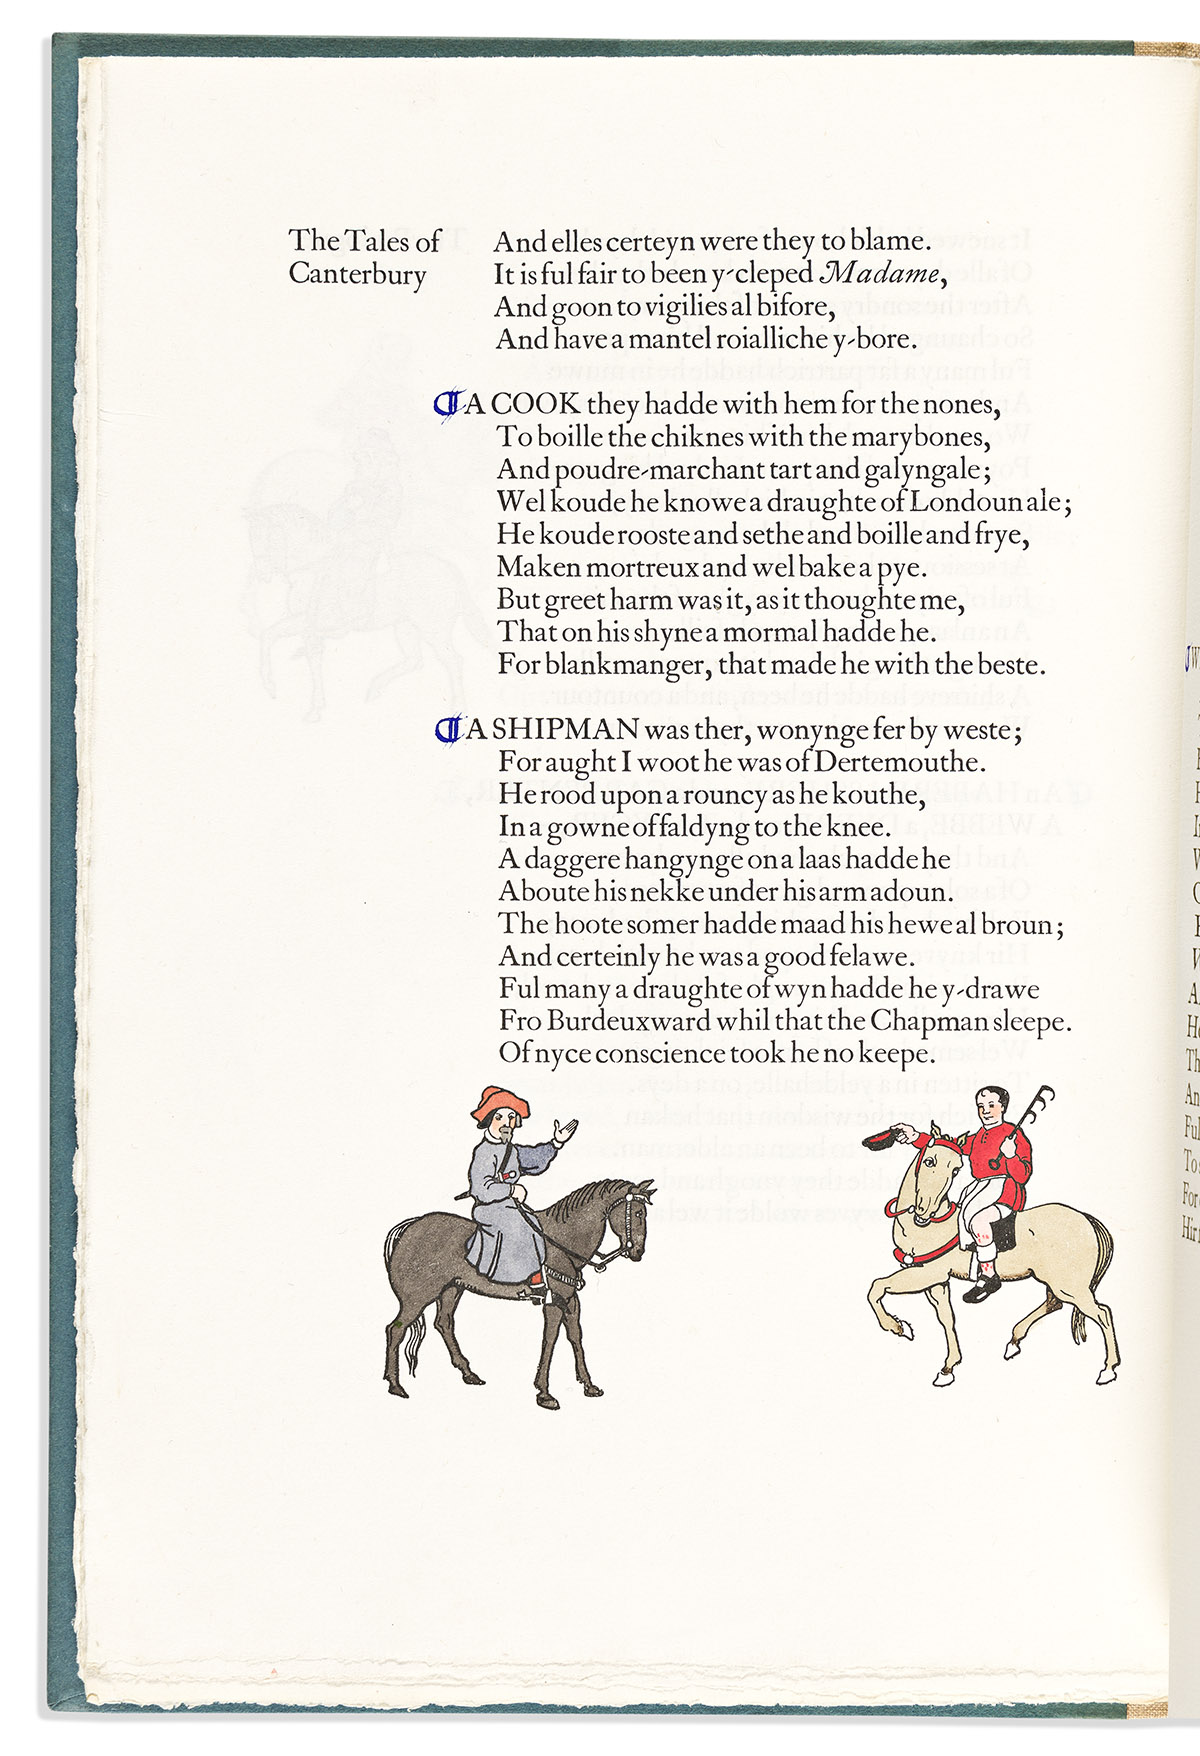 The Tales of
Canterbury
And elles certeyn were they to blame.
It is ful fair to been y-cleped Madame,
And goon to vigilies al bifore,
And have a mantel roialliche y-bore.
¶ A COOK they hadde with hem for the nones,
To boille the chiknes with the marybones,
And poudre-marchant tart and galyngale;
Wel koude he knowe a draughte of Londoun ale;
He koude rooste and sethe and boille and frye,
Maken mortreux and wel bake a pye.
But greet harm was it, as it thoughte me,
That on his shyne a mormal hadde he.
For blankmanger, that made he with the beste.
¶ A SHIPMAN was ther, wonynge fer by weste;
For aught I woot he was of Dertemouthe.
He rood upon a rouncy as he kouthe,
In a gowne of faldyng to the knee.
A daggere hangynge on a laas hadde he
Aboute his nekke under his arm adoun.
The hoote somer hadde maad his hewe al broun;
And certeinly he was a good felawe.
Ful many a draughte of wyn hadde he y-drawe
Fro Burdeuxward whil that the Chapman sleepe.
Of nyce conscience took he no keepe.